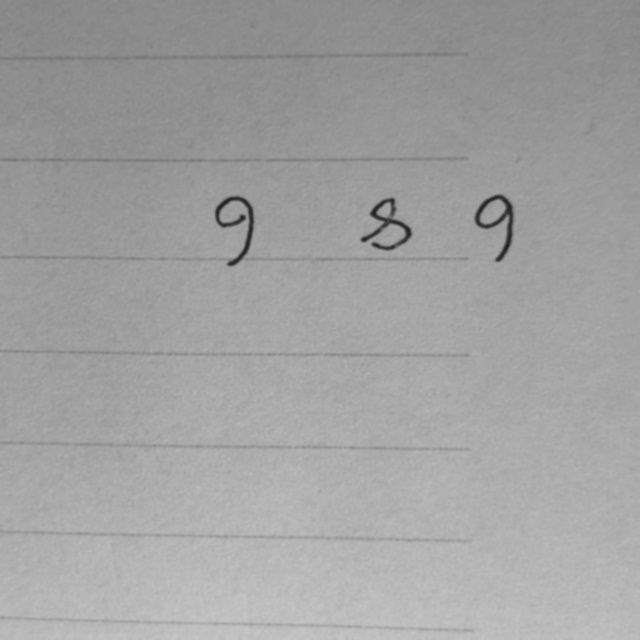 9 8 9